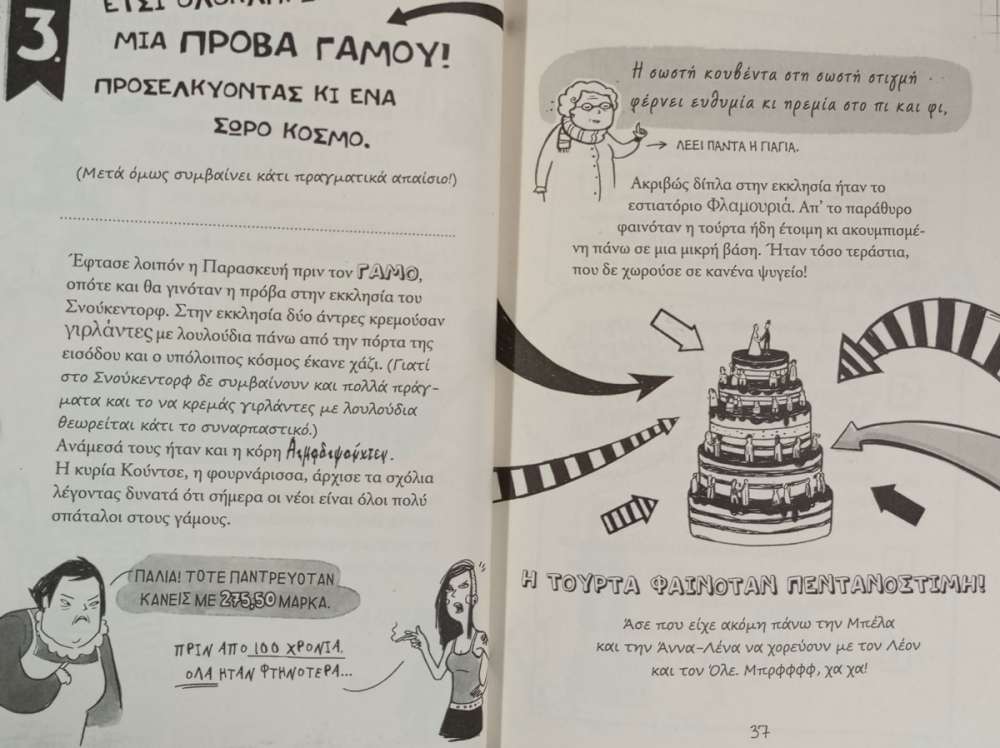 3.
ΜΙΑ ΠΡΟΒΑ ΓΑΜΟΥ!
ΠΡΟΣΕΛΚΥΟΝΤΑΣ ΚΙ ΕΝΑ
ΣΩΡΟ ΚΟΣΜΟ.
(Μετά όμως συμβαίνει κάτι πραγματικά απαίσιο!)
Έφτασε λοιπόν η Παρασκευή πριν τον ΓΑΜΟ,
οπότε και θα γινόταν η πρόβα στην εκκλησία του
Σνούκεντορφ. Στην εκκλησία δύο άντρες κρεμούσαν
γιρλάντες με λουλούδια πάνω από την πόρτα της
εισόδου και ο υπόλοιπος κόσμος έκανε χάζι. (Γιατί
στο Σνούκεντορφ δε συμβαίνουν και πολλά πράγ-
ματα και το να κρεμάς γιρλάντες με λουλούδια
θεωρείται κάτι το συναρπαστικό.)
Ανάμεσά τους ήταν και η κόρη
Η κυρία Κούντσε, η φουρνάρισσα, άρχισε τα σχόλια
λέγοντας δυνατά ότι σήμερα οι νέοι είναι όλοι πολύ
σπάταλοι στους γάμους.
ΠΑΛΙΑ! ΤΟΤΕ ΠΑΝΤΡΕΥΟΤΑΝ
ΚΑΝΕΙΣ ΜΕ 275,50 ΜΑΡΚΑ.
ΠΡΙΝ ΑΠΟ 100 ΧΡΟΝΙΑ.
ΟΛΑ ΗΤΑΝ ΦΤΗΝΟΤΕΡΑ...
Η σωστή κουβέντα στη σωστή στιγμή
φέρνει ευθυμία κι ηρεμία στο πι και φι,
ΛΕΕΙ ΠΑΝΤΑ Η ΓΙΑΓΙΑ.
Ακριβώς δίπλα στην εκκλησία ήταν το
εστιατόριο Φλαμουριά. Απ' το παράθυρο
φαινόταν η τούρτα ήδη έτοιμη κι ακουμπισμέ-
νη πάνω σε μια μικρή βάση. Ήταν τόσο τεράστια,
που δε χωρούσε σε κανένα ψυγείο!
Η ΤΟΥΡΤΑ ΦΑΙΝΟΤΑΝ ΠΕΝΤΑΝΟΣΤΙΜΗ!
Άσε που είχε ακόμη πάνω την Μπέλα
και την Άννα-Λένα να χορεύουν με τον Λέον
και τον Όλε. Μπρφφφφ, χα χα!
37